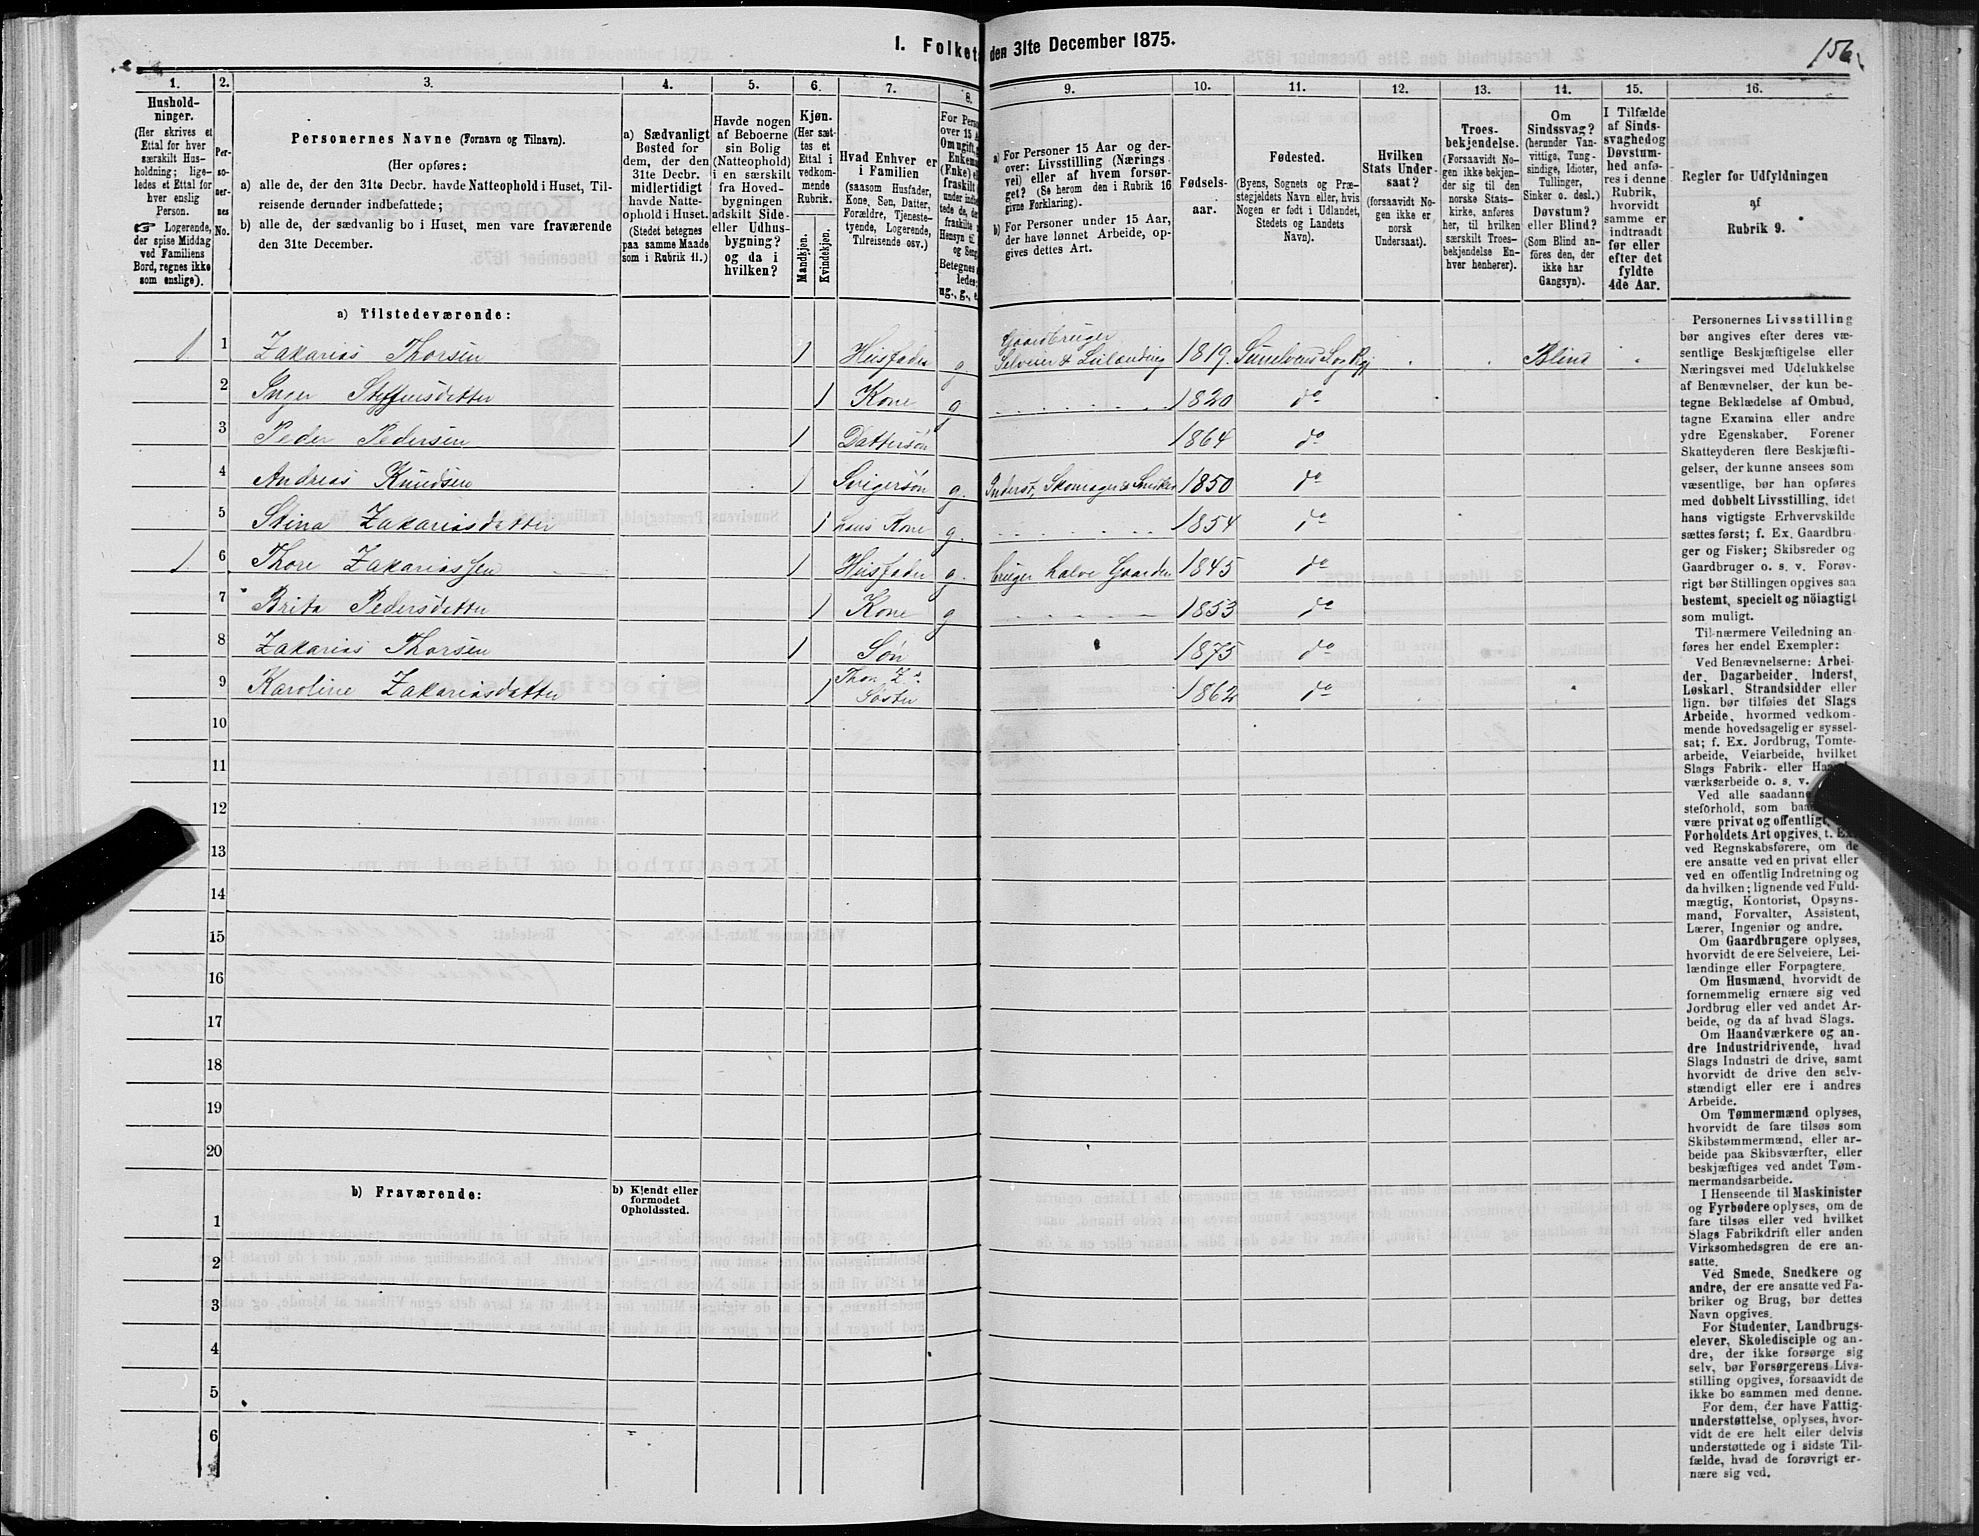 I. Folket den 31te December 1875.
156
1.
Hushold-
ninger.
(Her skrives et
Ettal for hver
særskilt Hus-
holdning; lige-
ledes et Ettal for
hver enslig
Person.
☞ Logerende,
der spise Middag
ved Familiens
Bord, regnes ikke
som enslige).
2.
Per-
so-
ner-
nes
No.
3.
Personernes Navne (Fornavn og Tilnavn).
(Her opføres:
a) alle de, der den 31te Decbr. havde Natteophold i Huset, Til-
reisende derunder indbefattede;
b) alle de, der sædvanlig bo i Huset, men vare fraværende
den 31te December.
4.
a) Sædvanligt
Bosted for
dem, der den
31te Decbr.
midlertidigt
havde Natte-
ophold i Huset.
(Stedet betegnes
paa samme Maade
som i Rubrik 11.)
5.
Havde nogen
af Beboerne
sin Bolig
(Natteophold)
i en særskilt
fra Hoved-
bygningen
adskilt Side-
eller Udhus-
bygning?
og da i
hvilken?
6.
Kjøn.
(Her sæt-
tes et
Ettal i
vedkom-
mende
Rubrik.
Mandkjøn.
Kvindekjøn.
7.
Hvad Enhver er
i Familien
(saasom Husfader,
Kone, Søn, Datter,
Forældre, Tjeneste-
tyende, Logerende,
Tilreisende osv.)
8.
For Perso
over 15 A
Om ugift, g
Enkem
(Enke) el
fraskilt
under indbe
tede de, de
fraskilte
Hensyn til
og Seng
Betegnes
ledes:
ug., g., e
9.
a) For Personer 15 Aar og der-
over: Livsstilling (Nærings
vei) eller af hvem forsør-
get? (Se herom den i Rubrik 16
givne Forklaring).
b) For Personer under 15 Aar,
der have lønnet Arbeide, op-
gives dettes Art.
10.
Fødsels-
aar.
11.
Fødested.
(Byens, Sognets og Præ-
stegjeldets Navn eller, hvis
Nogen er født i Udlandet,
Stedets og Landets
Navn).
12.
Hvilken
Stats Under-
saat?
(forsaavidt No-
gen ikke er
norsk
Undersaat).
13.
Troes-
bekjendelse.
(Forsaavidt No-
gen ikke bekjen-
der sig til den
norske Stats-
kirke, anføres
her, til hvilken
særskilt Troes-
bekjendelse En-
hver henhører).
14.
Om
Sindssvag?
(herunder Van-
vittige, Tung-
sindige, Idioter,
Tullinger,
Sinker o. desl.)
Døvstum?
eller Blind?
(Som Blind an-
føres den, der
ikke har
Gangsyn).
15.
I Tilfælde
af Sinds-
svaghed og
Døvstum-
hed anfø-
res i denne
Rubrik,
hvorvidt
samme er
indtraadt
før eller
efter det
fyldte
4de Aar.
16.
Regler for Udfyldningen
af
Rubrik 9.
a) Tilstedeværende:
1 1 Zakarias Thorsen 1 Husfader g. Gaardbruger
Selveier & Leilending 1819. Suneleus Sog Pgj Blind
2 Inger Steffensdatter 1 Kone g 1820 do
3 Peder Pedersen 1 Dattersøn 1864 do
4 Andreas Knudsen 1 Svigersøn g. Inderst, Skomager & Snedker 1850 do
5 Stina Zakariasdatter 1 hans Kone g. 1854 do
1 6 Thore Zakariassen 1 Husfader g. bruger halve Gaarden 1845 do
7 Brita Pedersdatter 1 Kone g 1853 do
8 Zakarias Thorsen 1 Søn 1875 do
9 Karoline Zakariasdatter 1 Thor. Z.s
Søster 1862 do
10
11
12
13
14
15
16
17
18
19
20
b) Fraværende:
b) Kjendt eller
formodet
Opholdssted.
1
2
3
4
5
6
Personernes Livsstilling
bør angives efter deres væ-
sentlige Beskjæftigelse eller
Næringsvei med Udelukkelse
af Benævnelser, der kun be-
tegne Beklædelse af Ombud,
tagne Examina eller andre
ydre Egenskaber. Forener
Skatteyderen flere Beskjæfti-
gelser, der kunne ansees som
væsentlige, bør han opføres
med dobbelt Livsstilling, idet
hans vigtigste Erhvervskilde
sættes først; f. Ex. Gaardbru-
ger og Fisker; Skibsreder og
Gaardbruger o. s. v. Forøv-
rigt bør Stillingen opgives saa
bestemt, specielt og nöiagtigt
som muligt.
Til nærmere Veiledning an-
føres her endel Exempler:
Ved Benævnelserne: Arbei-
der, Dagarbeider, Inderst,
Løskarl, Strandsidder eller
lign. bør tilføies det Slags
Arbeide, hvormed vedkom-
mende hovedsagelig er syssel-
sat; f. Ex. Jordbrug, Tomte-
arbeide, Veiarbeide, hvilket
Slags Fabrik- eller Haand-
værksarbeide o. s. v.
Ved alle saadanne
steforhold, som baa
være privat og offentligt,
Forholdets Art opgives, t. Ex.
ved Regnskabsførere, om de
ere ansatte ved en privat eller
ved en offentlig Indretning og
da hvilken; lignende ved Fuld-
mægtig, Kontorist, Opsyns-
mand, Forvalter, Assistent,
Lærer, Ingeniør og andre.
Om Gaardbrugere oplyses,
hvorvidt de ere Selveiere, Lei-
lændinge eller Forpagtere.
Om Husmænd, hvorvidt de
fornemmelig ernære sig ved
Jordbrug eller ved andet Ar-
beide, og da af hvad Slags.
Om Haandværkere og an-
dre Industridrivende, hvad
Slags Industri de drive, samt
hvorvidt de drive den selv-
stændigt eller ere i andres
Arbeide.
Om Tømmermænd oplyses,
hvorvidt de fare tilsøs som
Skibstømmermænd, eller ar-
beide paa Skibsværfter, eller
beskjæftiges ved andet Tøm-
mermandsarbeide.
I Henseende til Maskinister
og Fyrbødere oplyses, om de
fare tilsøs eller ved hvilket
Slags Fabrikdrift eller anden
Virksomhedsgren de ere an-
satte.
Ved Smede, Snedkere og
andre, der ere ansatte ved Fa-
briker og Brug, bør dettes
Navn opgives.
For Studenter, Landbrugs-
elever, Skoledisciple og an-
dre, der ikke forsørge sig
selv, bør Forsørgerens Livs-
stilling opgives, forsaavidt de
ikke bo sammen med denne.
For dem, der have Fattig-
understøttelse, oplyses, hvor-
vidt de ere helt eller delvis
understøttede og i sidste Til-
fælde, hvad de forøvrigt er-
nære sig ved.